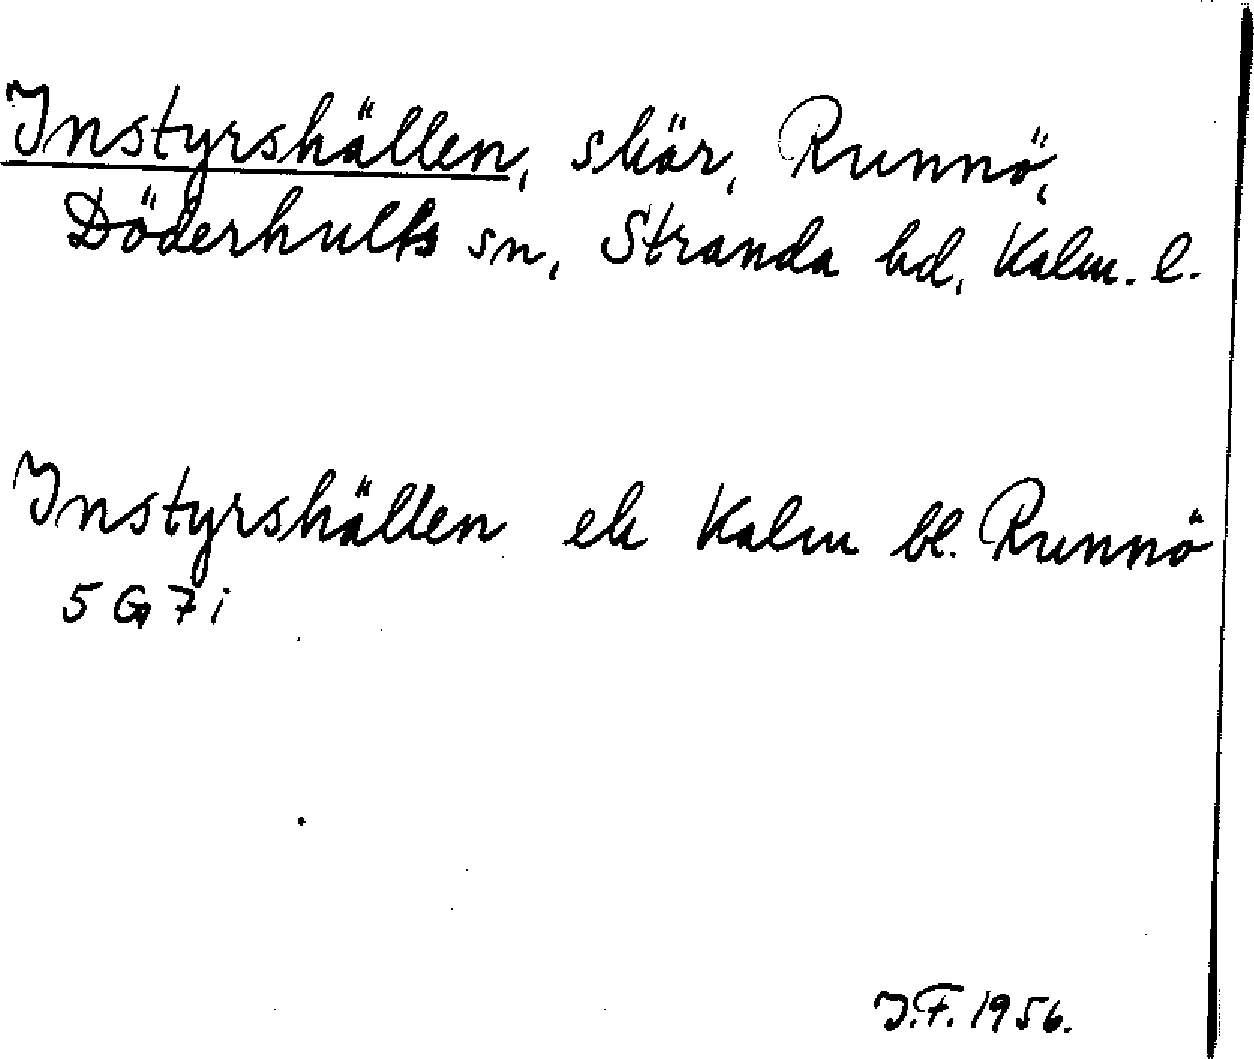 Instyrshällen, skär, Runnö,
Döderhults sn, Stranda hd, Kalm. l.
Instyrshällen ek Kalm bl. Runnö
5 G 7 i
J.F. 1956.